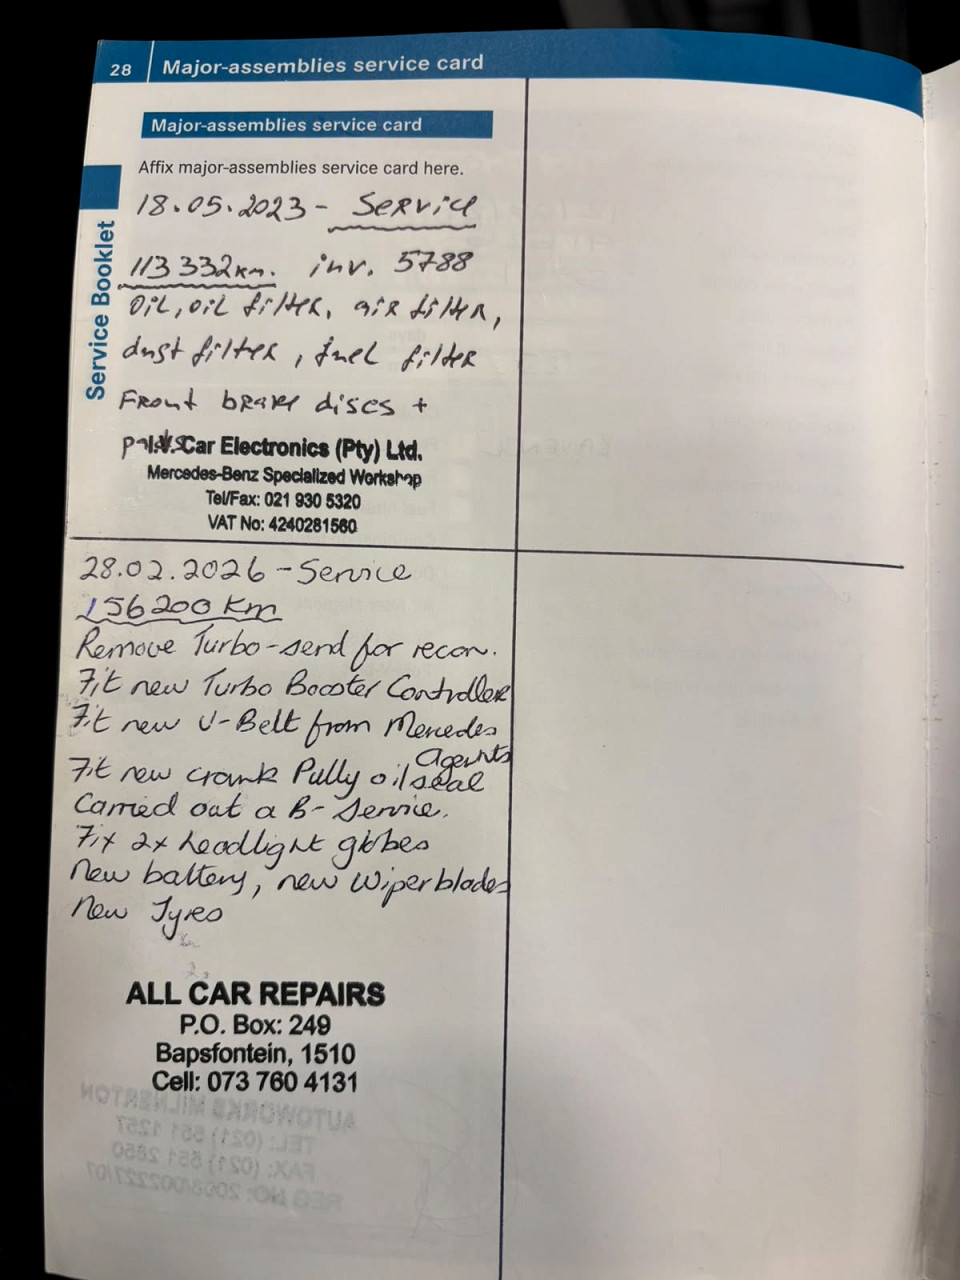 28 Major-assemblies service card
Major-assemblies service card
Affix major-assemblies service card here.
Service Booklet
18.05.2023 - Service
113 332 km. inv. 5788
Oil, oil filter, air filter,
dust filter, fuel filter
Front brake discs +
pads Car Electronics (Pty) Ltd.
Mercedes-Benz Specialized Workshop
Tel/Fax: 021 930 5320
VAT No: 4240281560
28.02.2026 - Service
156200 Km
Remove Turbo - send for recon.
Fit new Turbo Booster Controller
Fit new V-Belt from Mercedes
Agents
Fit new crank Pully oil seal
Carried out a B- Service.
Fix 2x headlight globes
New battery, new Wiper blades
New Tyres
ALL CAR REPAIRS
P.O. Box: 249
Bapsfontein, 1510
Cell: 073 760 4131
AUTOWORKS MILNERTON
TEL: (021) 551 1257
FAX: (021) 551 2850